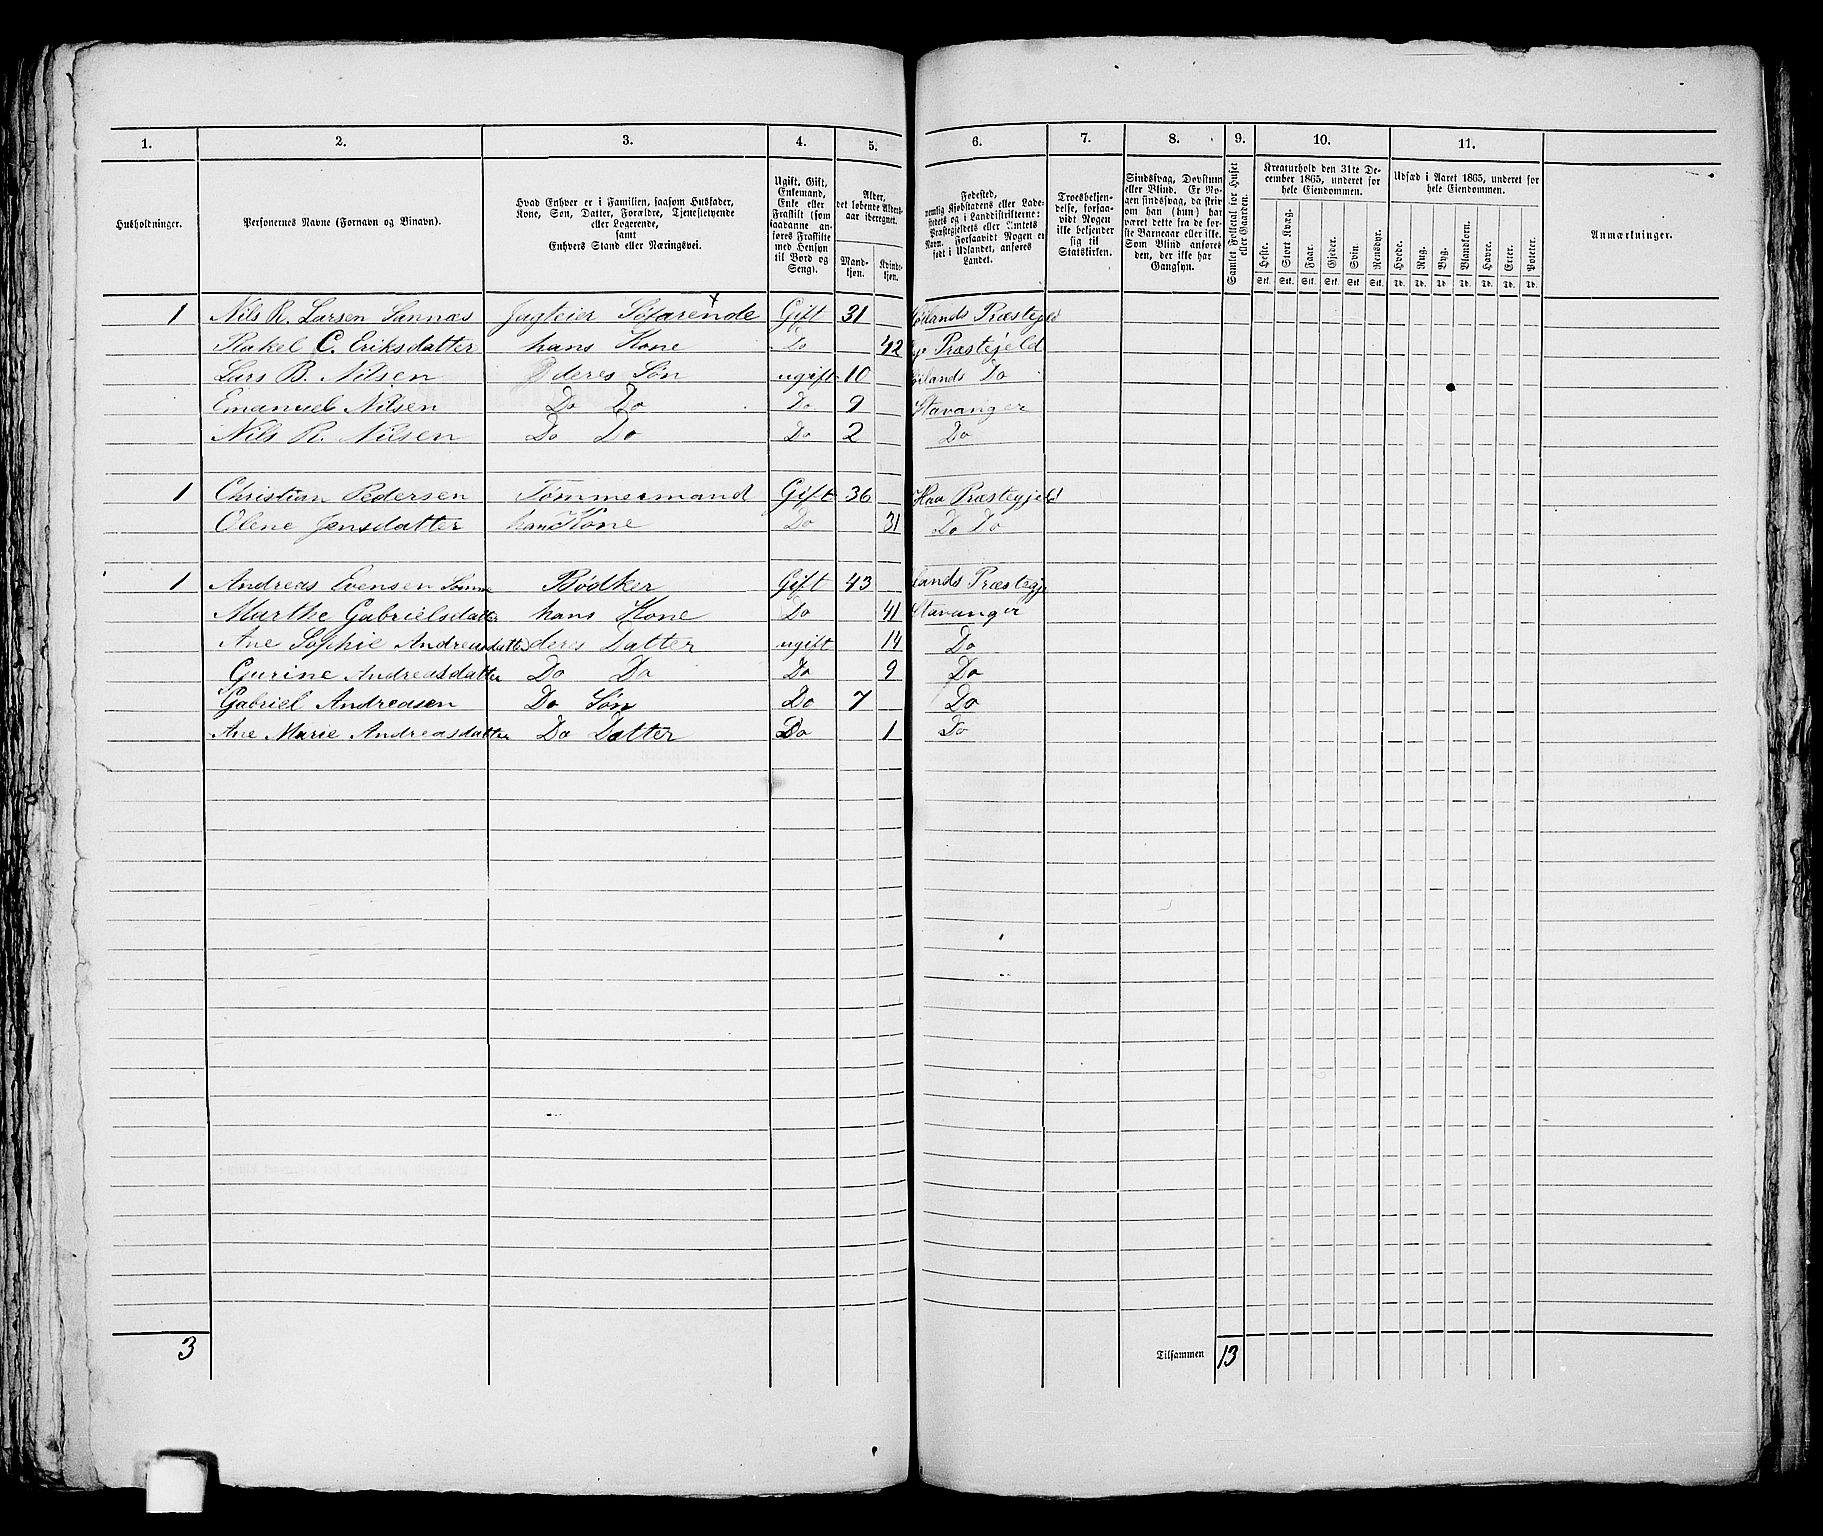 1. 2. 3. 4. 5. 6. 7. 8. 9. 10. 11.
Husholdninger.
Personernes Navne (Fornavn og Binavn).
Hvad Enhver er i Familien, saasom Husfader,
Kone, Søn, Datter, Forældre, Tjenestetyende
eller Logerende,
samt
Enhvers Stand eller Næringsvei.
Ugift, Gift,
Enkemand,
Enke eller
Fraskilt (som
saadanne an-
føres Fraskilte
med Hensyn
til Bord og
Seng).
Alder,
det løbende Alders-
aar iberegnet.
Mand-
kjøn.
Kvinde-
kjøn.
Fødested,
nemlig Kjøbstadens eller Lade-
stedets og i Landdistrikterne:
Præstegjeldets eller Amtets
Navn. Forsaavidt Nogen er
født i Udlandet, anføres
Landet.
Troesbekjen-
delse, forsaa-
vidt Nogen
ikke bekjender
sig til
Statskirken.
Sindssvag, Døvstum
eller Blind. Er No-
gen sindssvag, da skriv
om han (hun) har
været dette fra de før-
ste Barneaar eller ikke.
Som Blind anføres
den, der ikke har
Gangsyn.
Samlet Folketal for Huset
eller Gaarden.
Kreaturhold den 31te De-
cember 1865, underet for
hele Eiendommen.
Heste. Stort Kvæg. Faar. Gjeder. Svin. Rensdyr.
Stk. Stk. Stk. Stk. Stk. Stk.
Udsæd i Aaret 1865, underet for
hele Eiendommen.
Hvede. Rug. Byg. Blandkorn. Havre. Erter. Poteter.
Td. Td. Td. Td. Td. Td. Td.
Anmærkninger.
1 Nils R. Larsen Sannæs Jagteier Søfarende Gift 31 Høilands Præstegjeld
Rakel C. Eriksdatter hans Kone Do 42 Præstejeld
Lars B. Nilsen deres Søn ugift 10 Høilands Do
Emanuel Nilsen Do Do Do 9 Stavanger
Nils R. Nilsen Do Do Do 2 Do
1 Christian Pedersen Tømmermand Gift 36 Haa Præstegjeld
Olene Jensdatter hans Kone Do 31 Do Do
1 Andreas Evensen Bødker Gift 43 lands Præstegj
Marthe Gabrielsdatter hans Kone Do 41 Stavanger
Ane Sophie Andreasdatter deres Datter ugift 14 Do
Gurine Andreasdatter Do Do Do 9 Do
Gabriel Andreasen Do Søn Do 7 Do
Ane Marie Andreasdatter Do Datter Do 1 Do
3 Tilsammen 13